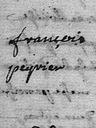 françois
peyrier